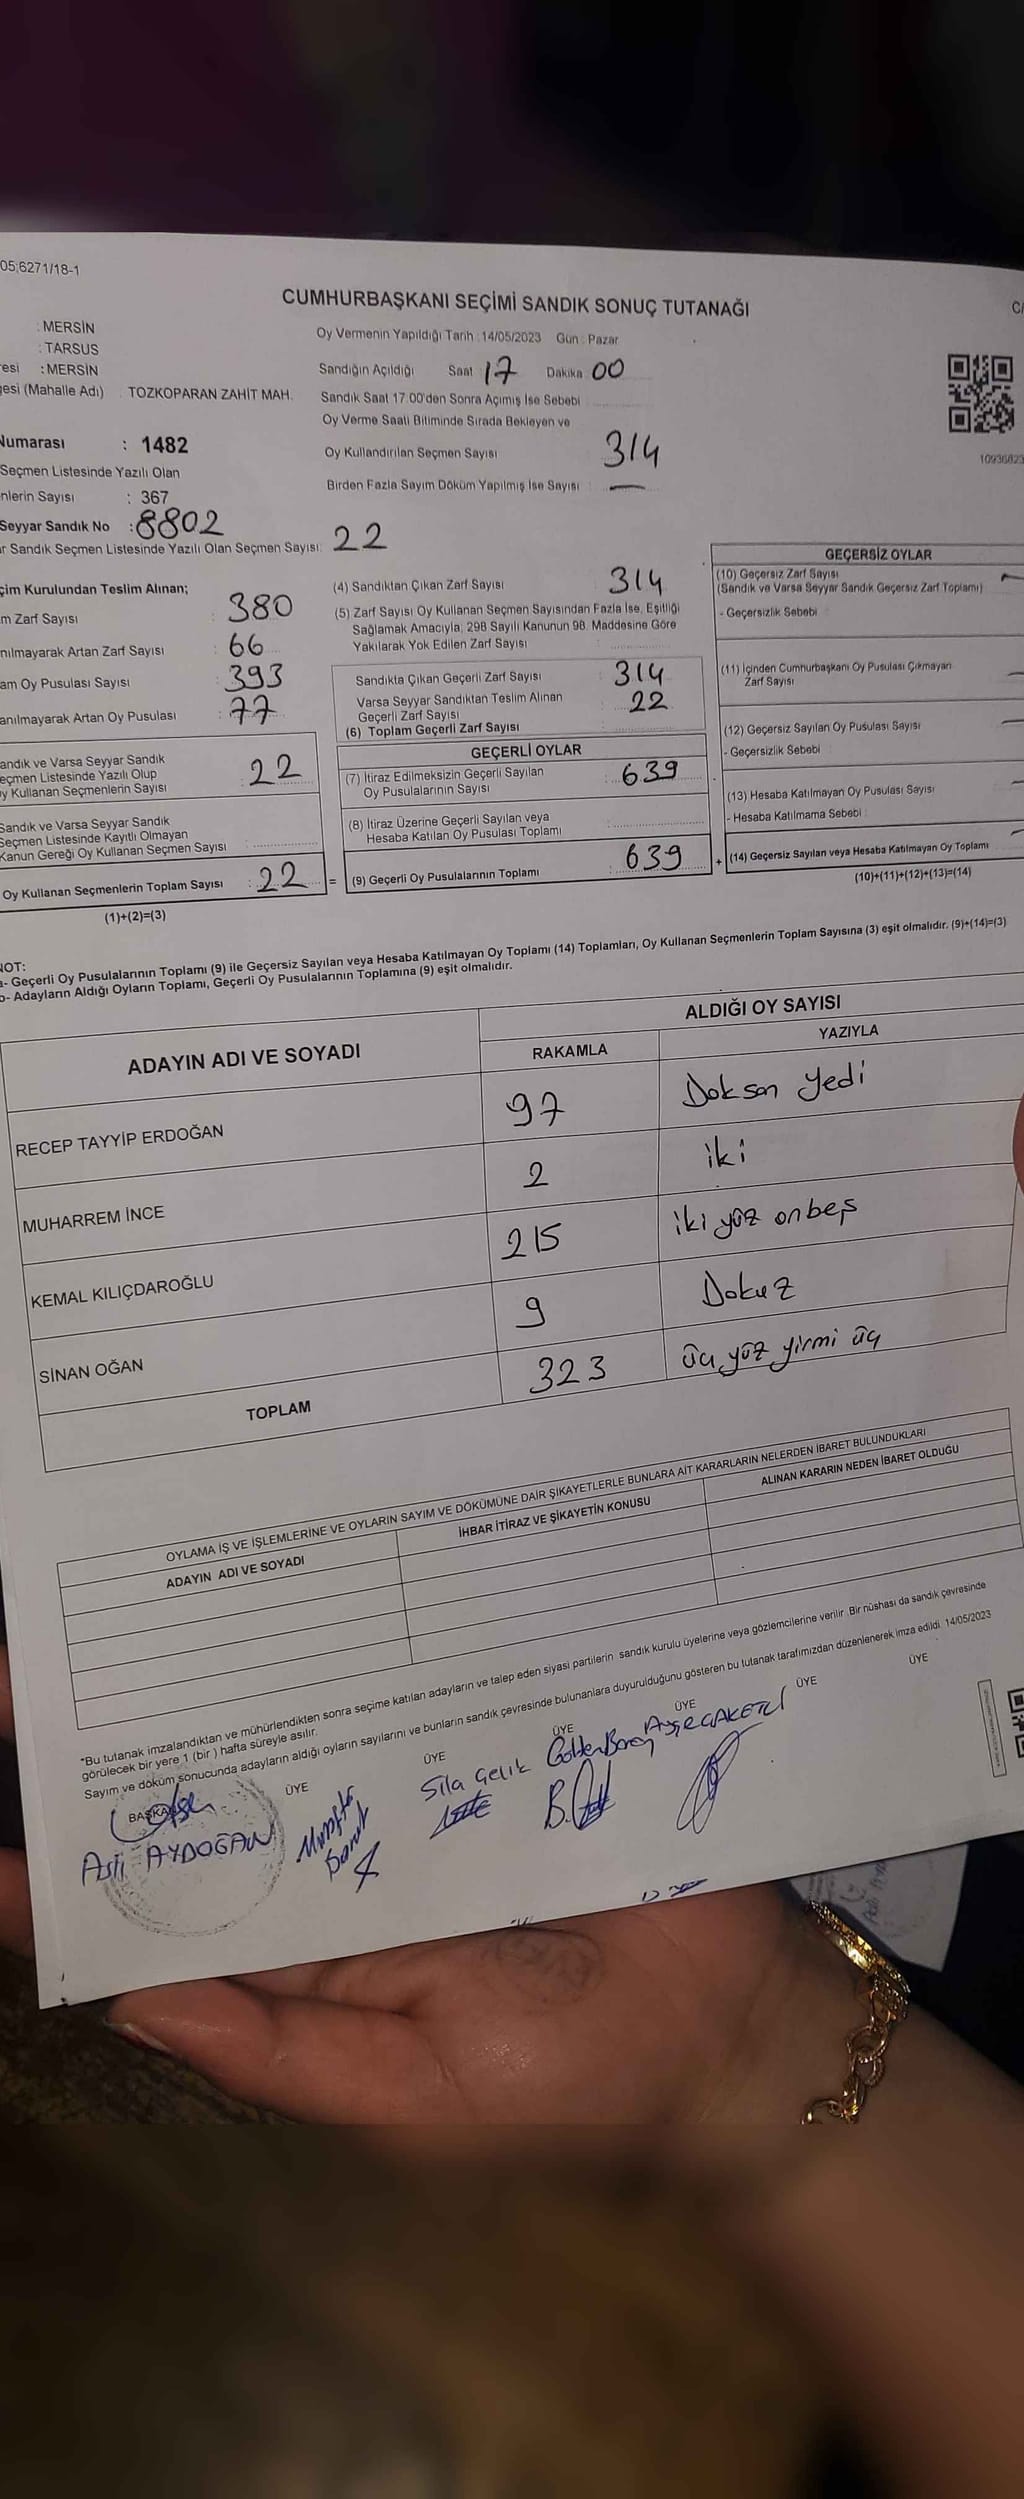 05;6271/18-1
CUMHURBAŞKANI SEÇİMİ SANDIK SONUÇ TUTANAĞI
: MERSİN
: TARSUS
: MERSİN
gesi (Mahalle Adı) : TOZKOPARAN ZAHİT MAH.
Numarası : 1482
Seçmen Listesinde Yazılı Olan
nlerin Sayısı : 367
Seyyar Sandık No : 8802
ar Sandık Seçmen Listesinde Yazılı Olan Seçmen Sayısı: 22
Oy Vermenin Yapıldığı Tarih : 14/05/2023 Gün : Pazar
Sandığın Açıldığı Saat 17 Dakika 00
Sandık Saat 17.00'den Sonra Açımış İse Sebebi
Oy Verme Saati Bitiminde Sırada Bekleyen ve
Oy Kullandırılan Seçmen Sayısı 314
Birden Fazla Sayım Döküm Yapılmış İse Sayısı : —
10936823
çim Kurulundan Teslim Alınan;
m Zarf Sayısı : 380
nılmayarak Artan Zarf Sayısı : 66
am Oy Pusulası Sayısı : 393
anılmayarak Artan Oy Pusulası : 77
andık ve Varsa Seyyar Sandık
eçmen Listesinde Yazılı Olup
y Kullanan Seçmenlerin Sayısı : 22
Sandık ve Varsa Seyyar Sandık
Seçmen Listesinde Kayıtlı Olmayan
Kanun Gereği Oy Kullanan Seçmen Sayısı :
Oy Kullanan Seçmenlerin Toplam Sayısı : 22
(1)+(2)=(3)
(4) Sandıktan Çıkan Zarf Sayısı : 314
(5) Zarf Sayısı Oy Kullanan Seçmen Sayısından Fazla İse, Eşitliği
Sağlamak Amacıyla, 298 Sayılı Kanunun 98. Maddesine Göre
Yakılarak Yok Edilen Zarf Sayısı :
Sandıkta Çıkan Geçerli Zarf Sayısı : 314
Varsa Seyyar Sandıktan Teslim Alınan
Geçerli Zarf Sayısı : 22
(6) Toplam Geçerli Zarf Sayısı :
GEÇERLİ OYLAR
(7) İtiraz Edilmeksizin Geçerli Sayılan
Oy Pusulalarının Sayısı : 639
(8) İtiraz Üzerine Geçerli Sayılan veya
Hesaba Katılan Oy Pusulası Toplamı :
= (9) Geçerli Oy Pusulalarının Toplamı : 639
GEÇERSİZ OYLAR
(10) Geçersiz Zarf Sayısı
(Sandık ve Varsa Seyyar Sandık Geçersiz Zarf Toplamı)
- Geçersizlik Sebebi :
(11) İçinden Cumhurbaşkanı Oy Pusulası Çıkmayan
Zarf Sayısı
(12) Geçersiz Sayılan Oy Pusulası Sayısı
- Geçersizlik Sebebi :
(13) Hesaba Katılmayan Oy Pusulası Sayısı
- Hesaba Katılmama Sebebi :
+ (14) Geçersiz Sayılan veya Hesaba Katılmayan Oy Toplamı
(10)+(11)+(12)+(13)=(14)
NOT:
a- Geçerli Oy Pusulalarının Toplamı (9) ile Geçersiz Sayılan veya Hesaba Katılmayan Oy Toplamı (14) Toplamları, Oy Kullanan Seçmenlerin Toplam Sayısına (3) eşit olmalıdır. (9)+(14)=(3)
b- Adayların Aldığı Oyların Toplamı, Geçerli Oy Pusulalarının Toplamına (9) eşit olmalıdır.
ADAYIN ADI VE SOYADI
ALDIĞI OY SAYISI
RAKAMLA YAZIYLA
RECEP TAYYİP ERDOĞAN 97 Doksan yedi
MUHARREM İNCE 2 iki
KEMAL KILIÇDAROĞLU 215 iki yüz onbeş
SİNAN OĞAN 9 Dokuz
TOPLAM 323 üç yüz yirmi üç
OYLAMA İŞ VE İŞLEMLERİNE VE OYLARIN SAYIM VE DÖKÜMÜNE DAİR ŞİKAYETLERLE BUNLARA AİT KARARLARIN NELERDEN İBARET BULUNDUKLARI
ADAYIN ADI VE SOYADI İHBAR İTİRAZ VE ŞİKAYETİN KONUSU ALINAN KARARIN NEDEN İBARET OLDUĞU
*Bu tutanak imzalandıktan ve mühürlendikten sonra seçime katılan adayların ve talep eden siyasi partilerin sandık kurulu üyelerine veya gözlemcilerine verilir. Bir nüshası da sandık çevresinde
görülecek bir yere 1 (bir) hafta süreyle asılır.
Sayım ve döküm sonucunda adayların aldığı oyların sayılarını ve bunların sandık çevresinde bulunanlara duyurulduğunu gösteren bu tutanak tarafımızdan düzenlenerek imza edildi. 14/05/2023
BAŞKAN ÜYE ÜYE ÜYE ÜYE ÜYE ÜYE
Aslı AYDOĞAN
Sıla Çelik